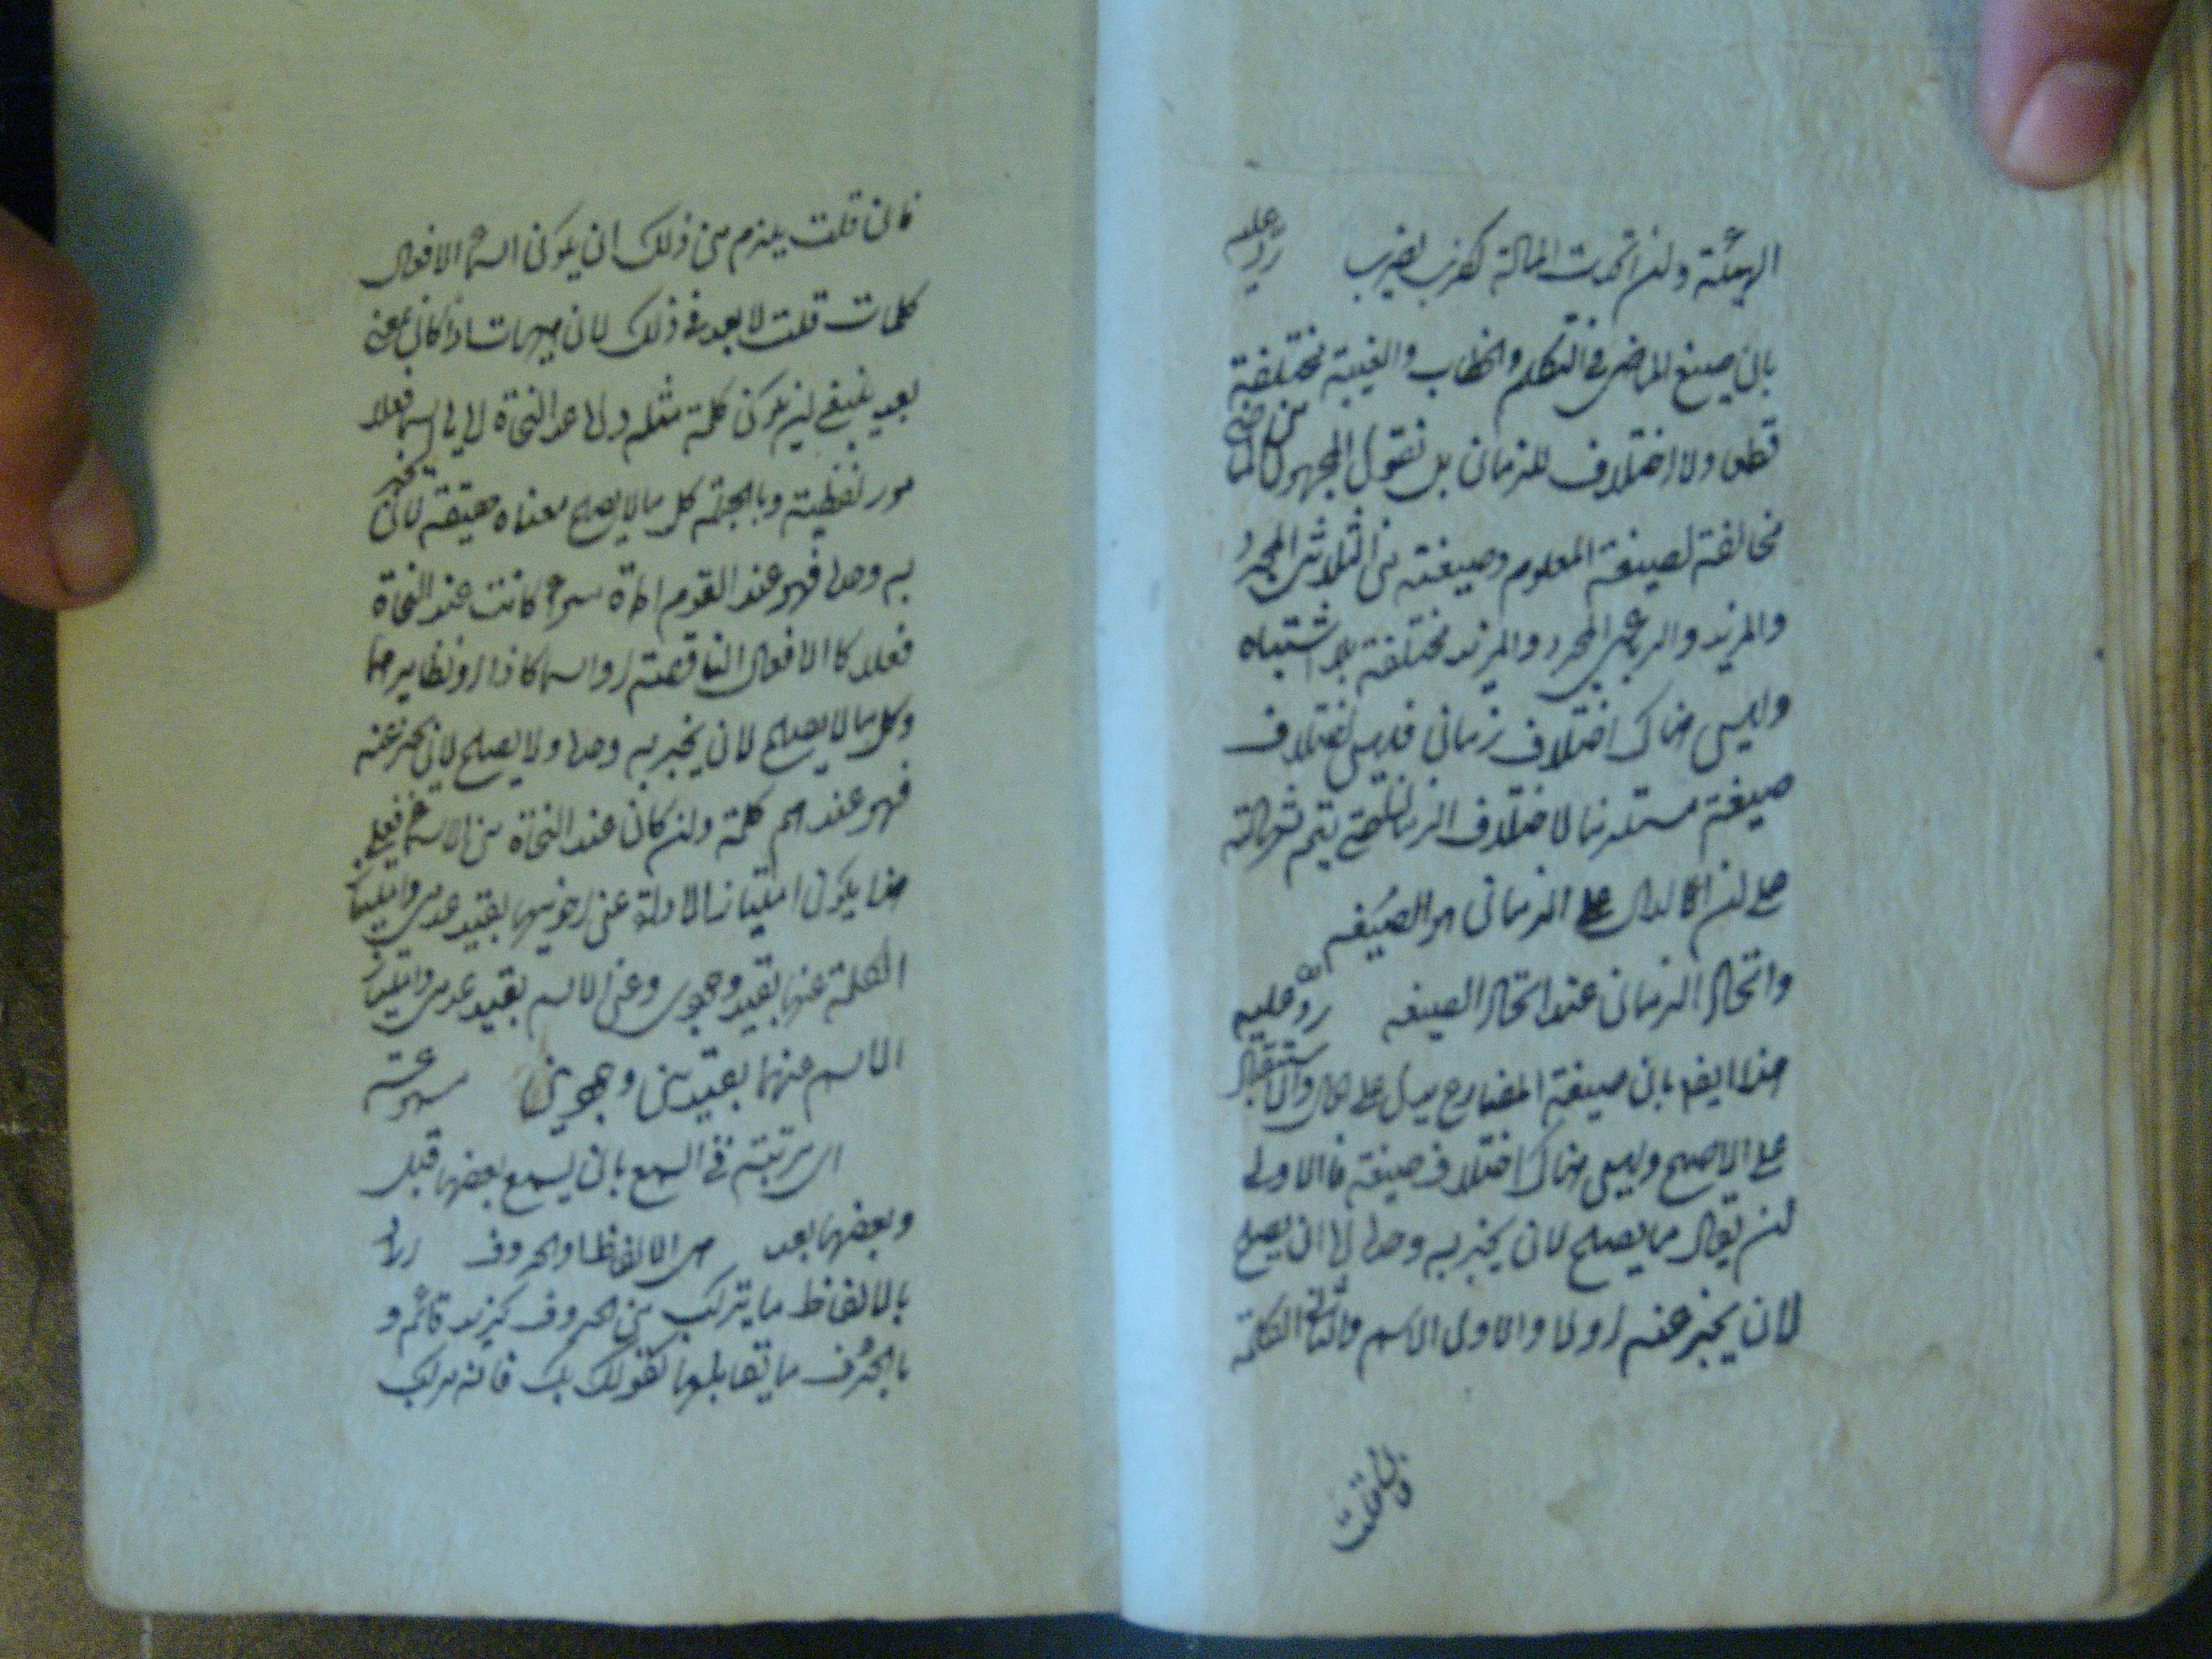 الهيئة وان اتحدت المادة كضرب يضرب رد عليه
بان صيغ الماضى فى التكلم والخطاب والغيبة مختلفة
قطعا ولا اختلاف للزمان بل نقول المجهول من الماضى
مخالفة لصيغة المعلوم وصيغته من الثلاثى المجرد
والمزيد والرباعى المجرد والمزيد مختلفة بلا اشتباه
وليس هناك اختلاف زمان فليس اختلاف
صيغة مستلزما لاختلاف الزمان حتى يتم
على ان الدال على الزمان هو الصيغه
واتحاد الزمان عند اتحاد الصيغه رد عليه
هذا ايضا بان صيغة المضارع يدل على الحال والاستقبال
على الاصح وليس هناك اختلاف صيغة فالاولى
ان يقال ما يصلح لان يخبر به وحده اما ان يصلح
لان يخبر عنه اولا والاول الاسم والثانى الكلمة
فان قلت
فان قلت يلزم من ذلك ان يكون اسماء الافعال
كلمات قلت لا بعد فى ذلك لان هيهات اذا كان بمعنى
بعد ينبغى ان يكون كلمة مثله وانما عد النحاة اسما فعلا
لامور لفظية وبالجملة كل ما لا يصلح معناه حقيقة لان يخبر
به وحده فهو عند القوم اداة سواء كانت عند النحاة
فعلا كالافعال الناقصة او اسما كاذا ونظايرها
وكل ما لا يصلح لان يخبر به وحده ولا يصلح لان يخبر عنه
فهو عندهم كلمة وان كان عند النحاة من الاسماء فعلى
هذا يكون امتياز الاداة عن اخويها بقيد عدمى وامتياز
الكلمة عنها بقيد وجودى وعن الاسم بقيد عدمى وامتياز
الاسم عنهما بقيدين وجوديين مسموعة
اى مرتبة فى السمع بان يسمع بعضها قبل
وبعضها بعد من الالفاظ او الحروف اراد
بالالفاظ ما يتركب من الحروف كزيد قائم و
بالحروف ما يقابلها كقولك بك فانه مركب